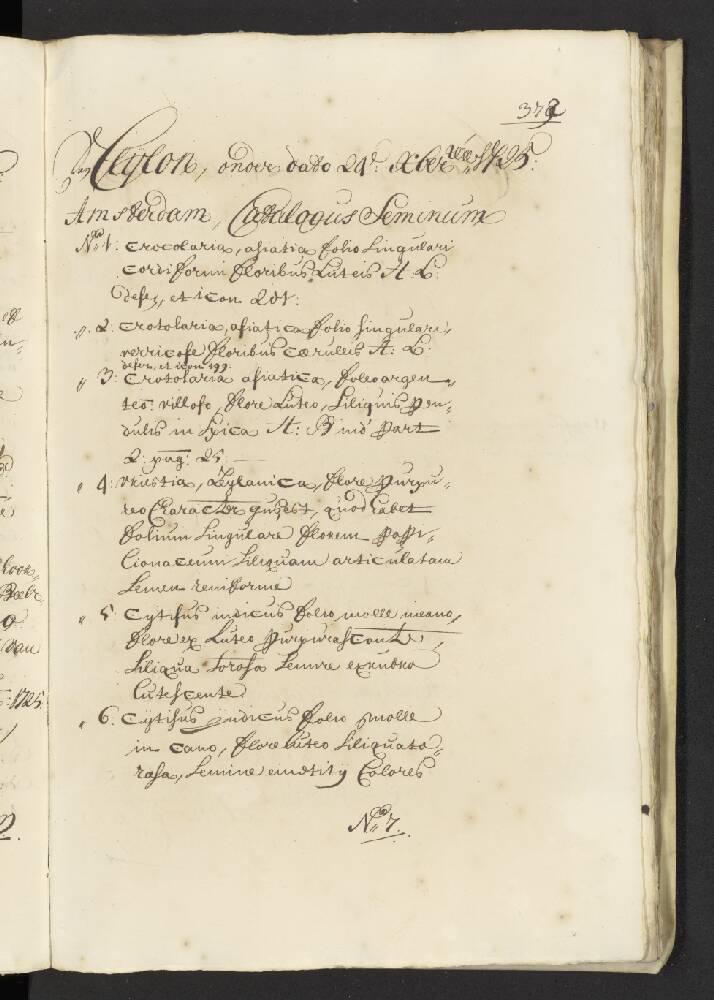 379
Ceÿlon, onder dato 24:e Xber 1725:
Amsterdam, Catalogus Seminum
N:o 1: Crotolaria, asiatia folio Singulari
Cordiformi floribus Luteis H: L:
desc, et icon 201:
„ 2: Crotolaria, asiatica folio singulari,
verricose floribus Cæruleis H: L:
desen, et icon 199.
„ 3: Crotolaria asiatica, folio argen„
teo: villoso, flore Luteo, Siliquis pen„
dulis in spica H: B ind part
2: pag: 25:
„ 4: Zÿlanica, flore purpu„
reo Character est, quod habet
folium singulare florem papi„
lionaceum siliquam articulatam
Semen reniforme
„ 5: Cytisus indicus folio molle incano,
flore ex Luteo purpurascente,
Siliqua torosa Semine
Lutescente
„ 6: Cytisus indicus folio molle
in cano, flore luteo siliqua to„
rosa, Semine Colores
N:o 7.
Boeke
van
1725